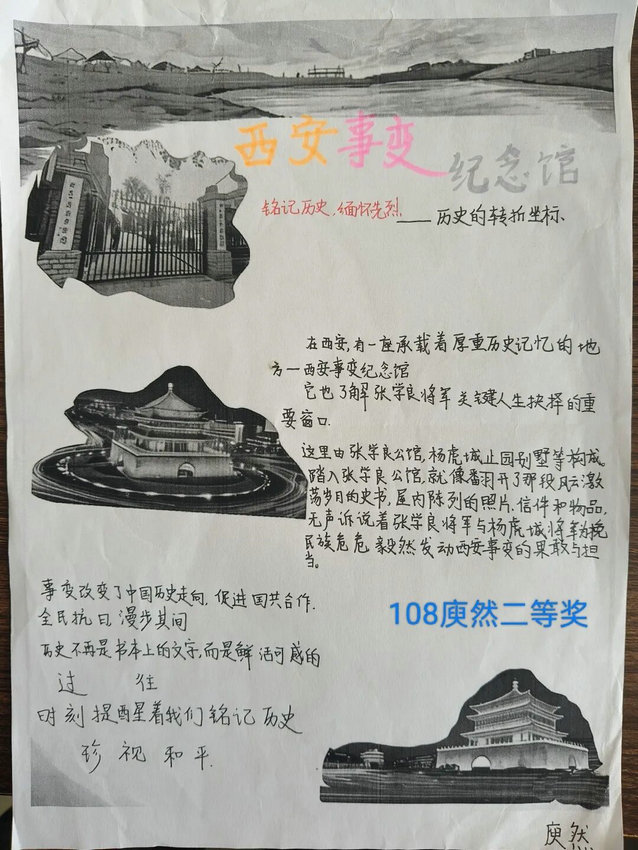 西安事变纪念馆
铭记历史,缅怀先烈.——历史的转折坐标、
在西安,有一座承载着厚重历史记忆的地
方一西安事变纪念馆
它也了解张学良将军关键人生抉择的重
要窗口.
这里由张学良公馆,杨虎城止园别墅等构成。
踏入张学良公馆,就像翻开了那段风云激
荡岁月的史书,屋内陈列的照片.信件和物品,
无声诉说着张学良将军与杨虎城将军为挽
民族危危,毅然发动西安事变的果敢与担
当。
事变改变了中国历史走向,促进国共合作.
全民抗日,漫步其间
历史不再是书本上的文字,而是鲜活可感的
过往
时刻提醒着我们铭记历史
珍视和平.
108庾然二等奖
庾然